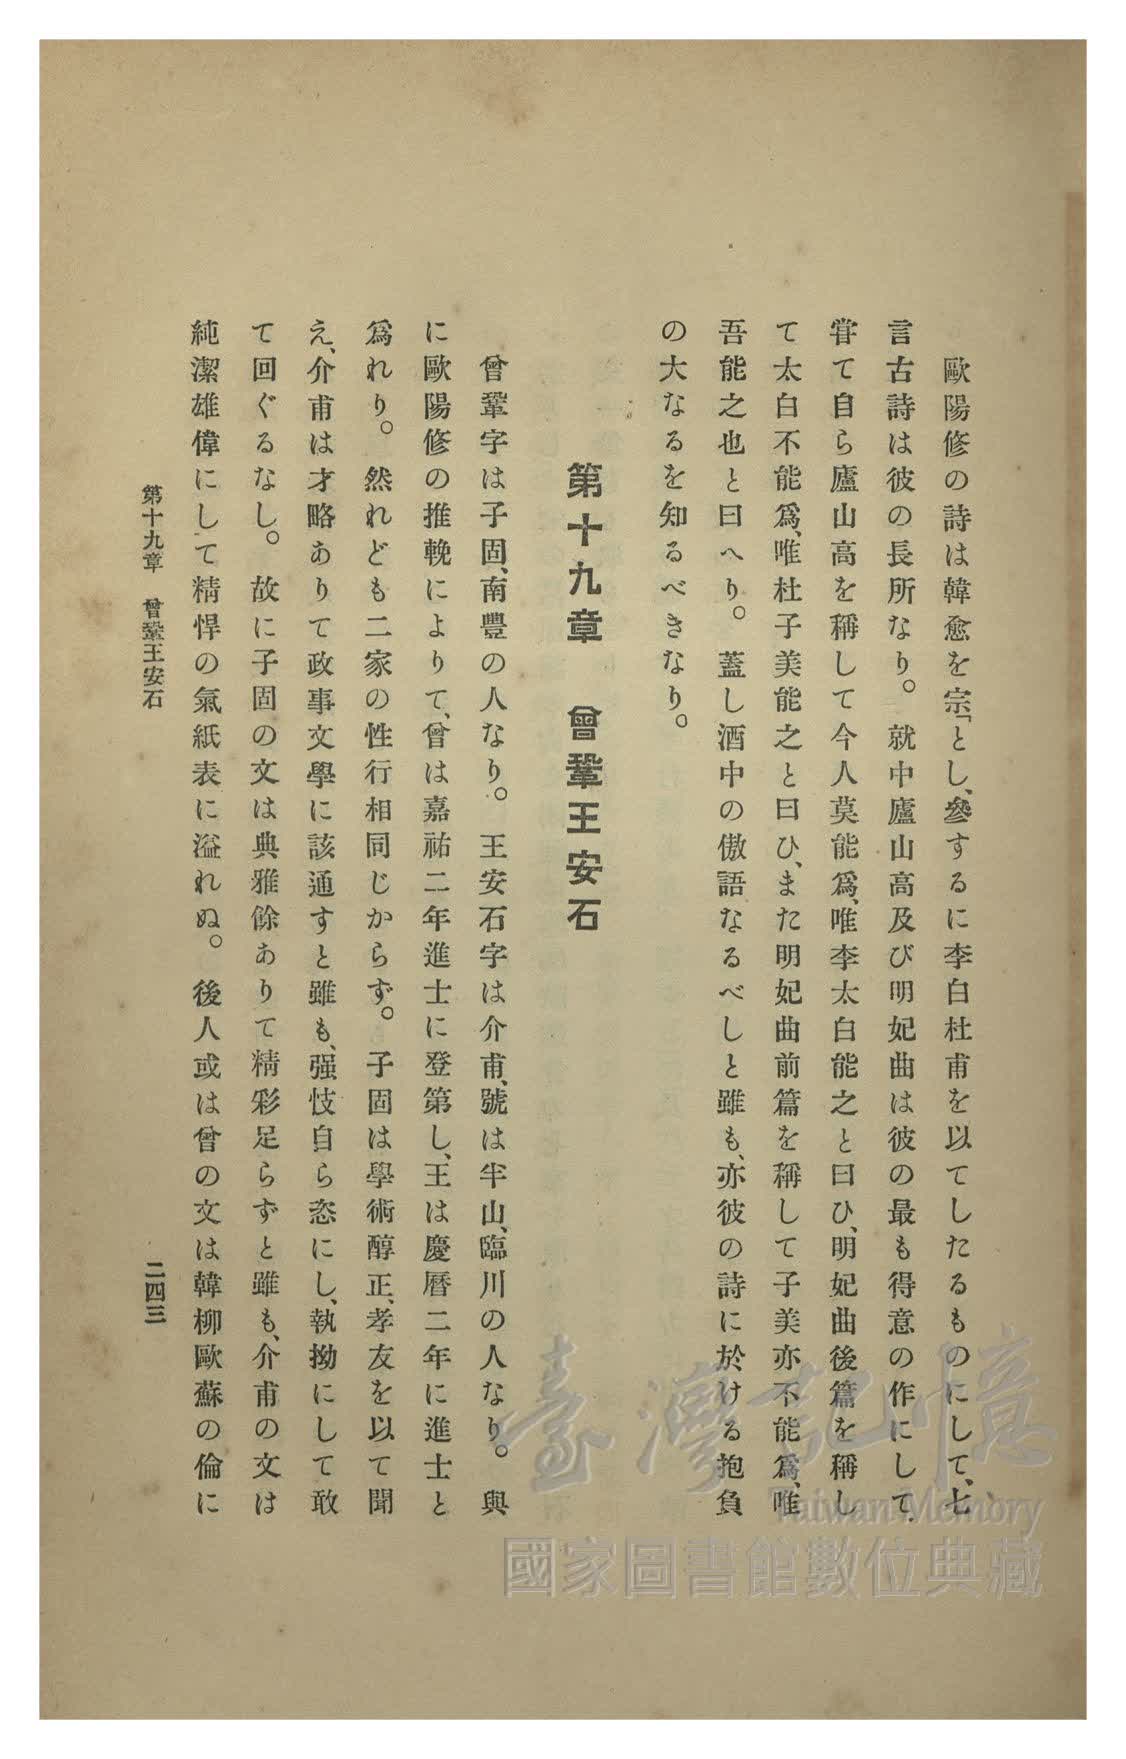 歐陽修の詩は韓愈を宗「とし、參するに李白杜甫を以てしたるものにして、七
言古詩は彼の長所なり。就中廬山高及び明妃曲は彼の最も得意の作にして、
甞て自ら廬山高を稱して今人莫能爲、唯李太白能之と曰ひ、明妃曲後篇を稱し
て太白不能爲、唯杜子美能之と曰ひ、また明妃曲前篇を稱して子美亦不能爲、唯
吾能之也と曰へり。蓋し酒中の傲語なるべしと雖も、亦彼の詩に於ける抱負
の大なるを知るべきなり。
第十九章　曾鞏王安石
曾鞏字は子固、南豐の人なり。王安石字は介甫、號は半山、臨川の人なり。與
に歐陽修の推輓によりて、曾は嘉祐二年進士に登第し、王は慶曆二年に進士と
爲れり。然れども二家の性行相同じからず。子固は學術醇正、孝友を以て聞
え、介甫は才略ありて政事文學に該通すと雖も、强忮自ら恣にし、執拗にして敢
て回ぐるなし。故に子固の文は典雅餘ありて精彩足らずと雖も、介甫の文は
純潔雄偉にして精悍の氣紙表に溢れぬ。後人或は曾の文は韓柳歐蘇の倫に
第十九章　曾鞏王安石
二四三
臺灣記憶
Taiwan Memory
國家圖書館數位典藏